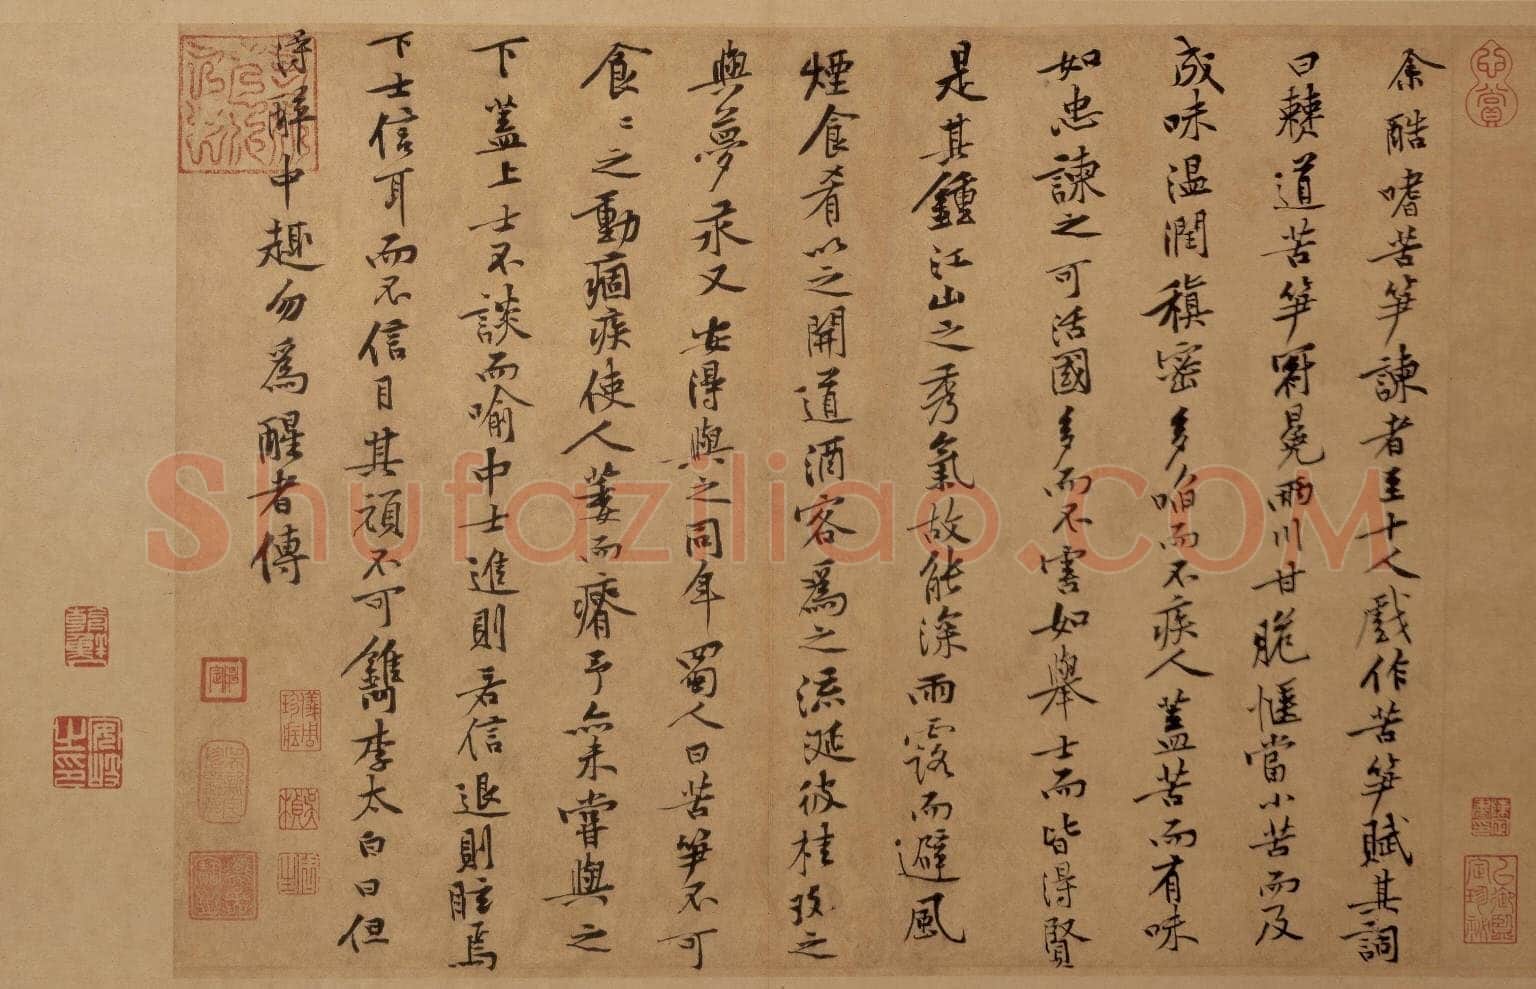 余酷嗜苦笋諫者至十人戲作苦笋賦其詞
曰僰道苦笋冠冕兩川甘脆愜當小苦而及
成味温潤稹密多啗而不疾人蓋苦而有味
如忠諫之可活國多而不害如舉士而皆得賢
是其鍾江山之秀氣故能深雨露而避風
煙食肴以之開道酒客為之流涎彼桂玫之
與夢汞又安得與之同年蜀人曰苦笋不可
食〻之動痼疾使人萎而瘠予亦未嘗與之
下蓋上士不談而喻中士進則若信退則眩焉
下士信耳而不信目其頑不可鐫李太白曰但
得醉中趣勿為醒者傳
Shufaziliao.COM